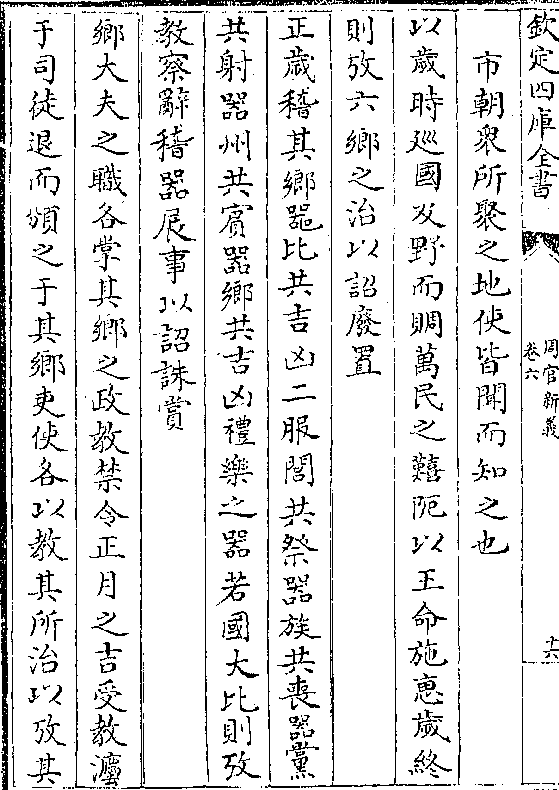 欽定四庫全書
周官新義
卷六
十六
市朝衆所聚之地使皆聞而知之也
以歲時廵國及野而賙萬民之囏阨以王命施惠歲終
則攷六鄉之治以詔廢置
正歲稽其鄉器比共吉凶二服閭共祭器族共喪器黨
共射器州共賓器鄉共吉凶禮樂之器若國大比則攷
教察辭稽器展事以詔誅賞
鄉大夫之職各掌其鄉之政教禁令正月之吉受教灋
于司徒退而頒之于其鄉吏使各以教其所治以攷其